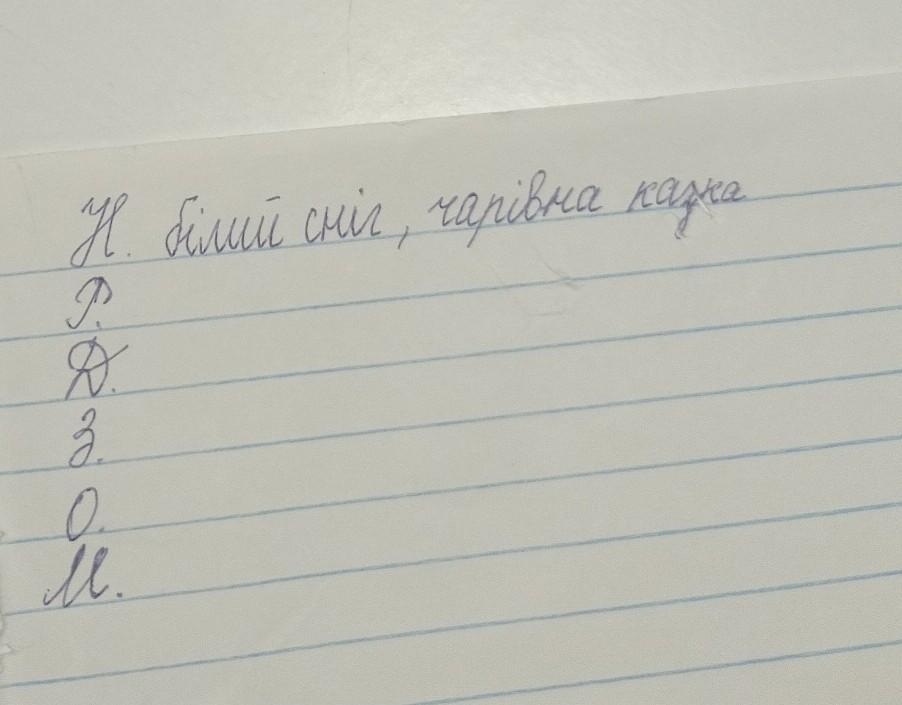 Н. білий сніг, чарівна казка
Р.
Д.
З.
О.
М.